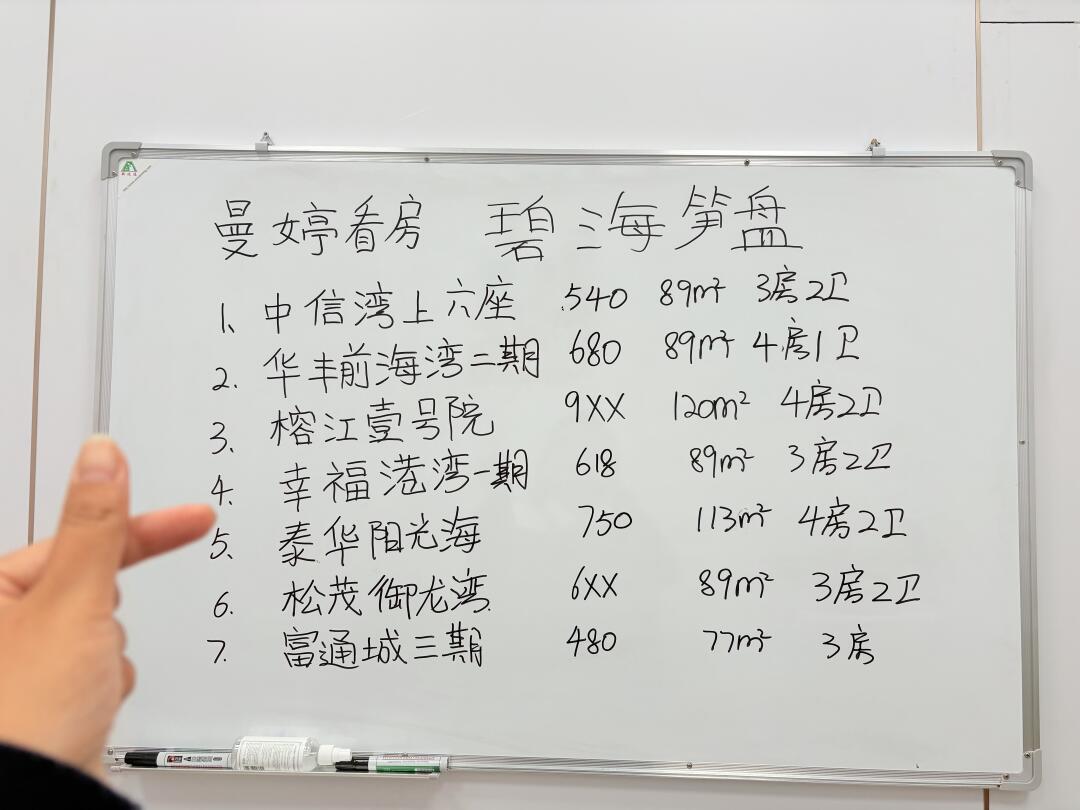 曼婷看房 碧海笋盘
1、中信湾上六座 540 89m² 3房2卫
2. 华丰前海湾二期 680 89m² 4房1卫
3. 榕江壹号院 9XX 120m² 4房2卫
4. 幸福港湾一期 618 89m² 3房2卫
5. 泰华阳光海 750 113m² 4房2卫
6. 松茂御龙湾 6XX 89m² 3房2卫
7. 富通城三期 480 77m² 3房